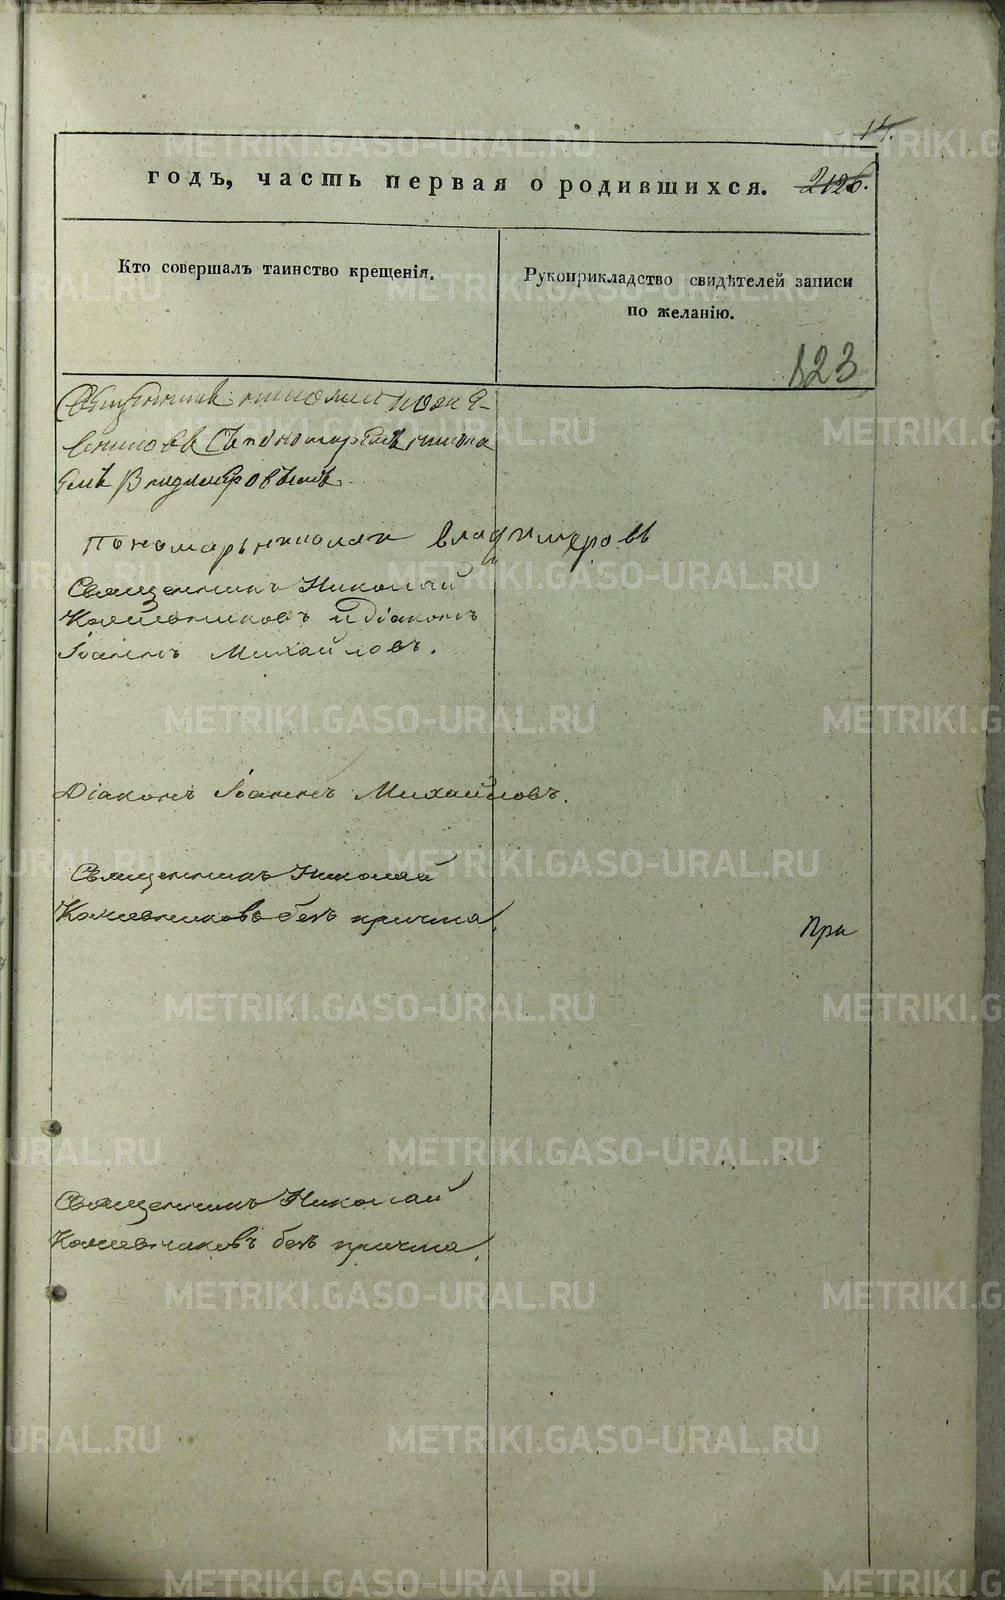 14.
годъ, часть первая о родившихся. 212б.
Кто совершалъ таинство крещенія.
Рукоприкладство свидѣтелей записи
по желанію.
123
Священник николаи Коже-
вниковъ Съ пономаремъ никола
емъ Владимеровымъ.
Пономарь николаи владимеровъ
Священникъ Николай
Кожевниковъ и Діаконъ
Іоаннъ Михайловъ.
Діаконъ Іоаннъ Михайловъ.
Священникъ Николай
Кожевниковъ безъ причта.
При
Священникъ Николай
Кожевниковъ безъ причта.
METRIKI.GASO-URAL.RU